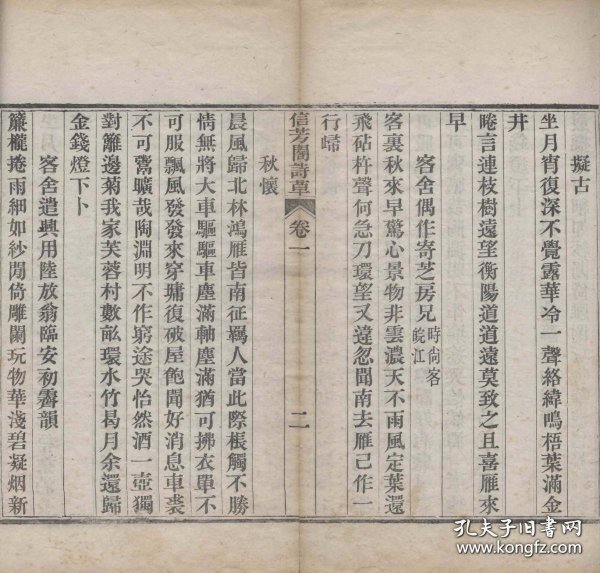 擬古
坐月宵復深不覺露華冷一聲絡緯鳴梧葉滿金
井
睠言連枝樹遠望衡陽道道遠莫致之且喜雁來
早
客舍偶作寄芝房兄時尙客皖江
客裏秋來早驚心景物非雲濃天不雨風定葉還
飛砧杵聲何急刀環望又違忽聞南去雁已作一
行歸
信芳閣詩草
卷一
二
秋懷
晨風歸北林鴻雁皆南征羈人當此際棖觸不勝
情無將大車驅驅車塵滿軸塵滿猶可拂衣單不
可服飄風發發來穿墉復破屋飽聞好消息車裘
不可鬻曠哉陶淵明不作窮途哭怡然酒一壺獨
對籬邊菊我家芙蓉村數畝環水竹曷月余還歸
金錢燈下卜
客舍遣興用陸放翁臨安初霽韻
簾櫳捲雨細如紗閒倚雕闌玩物華淺碧凝烟新
孔夫子旧书网
www.kongfz.com